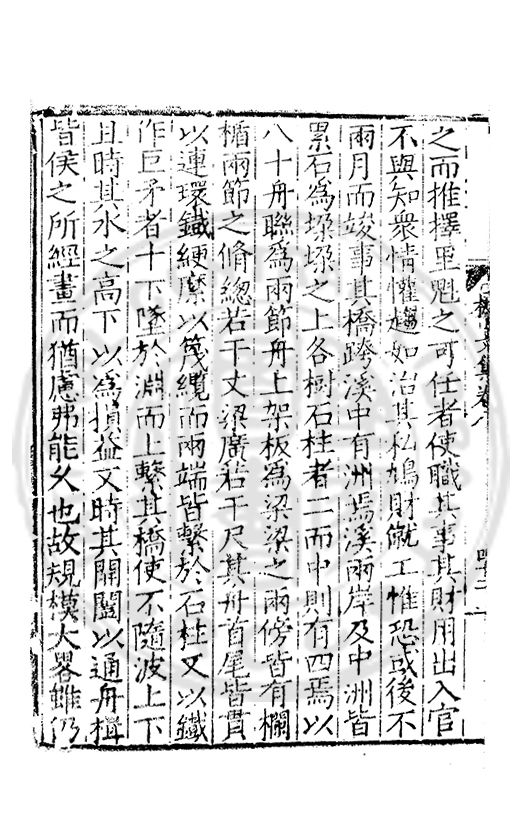 之而推擇里魁之可任者使職其事其財用出入官
不與知衆情懽趨如治其私鳩財僦工惟恐或後不
兩月而竣事其橋跨溪中有洲焉溪兩岸及中洲皆
累石爲垜垜之上各樹石柱者二而中則有四焉以
八十舟聯爲兩節舟上架板爲梁梁之兩傍皆有欄
楯兩節之脩總若干丈梁廣若干尺其舟首尾皆貫
以連環鐵綆縻以筏纜而兩端皆繫於石柱又以鐵
作巨矛者十下墜於淵而上繫其橋使不隨波上下
且時其水之高下以爲損益又時其開闔以通舟楫
皆侯之所經畫而猶慮弗能久也故規模大畧雖仍
文集卷八